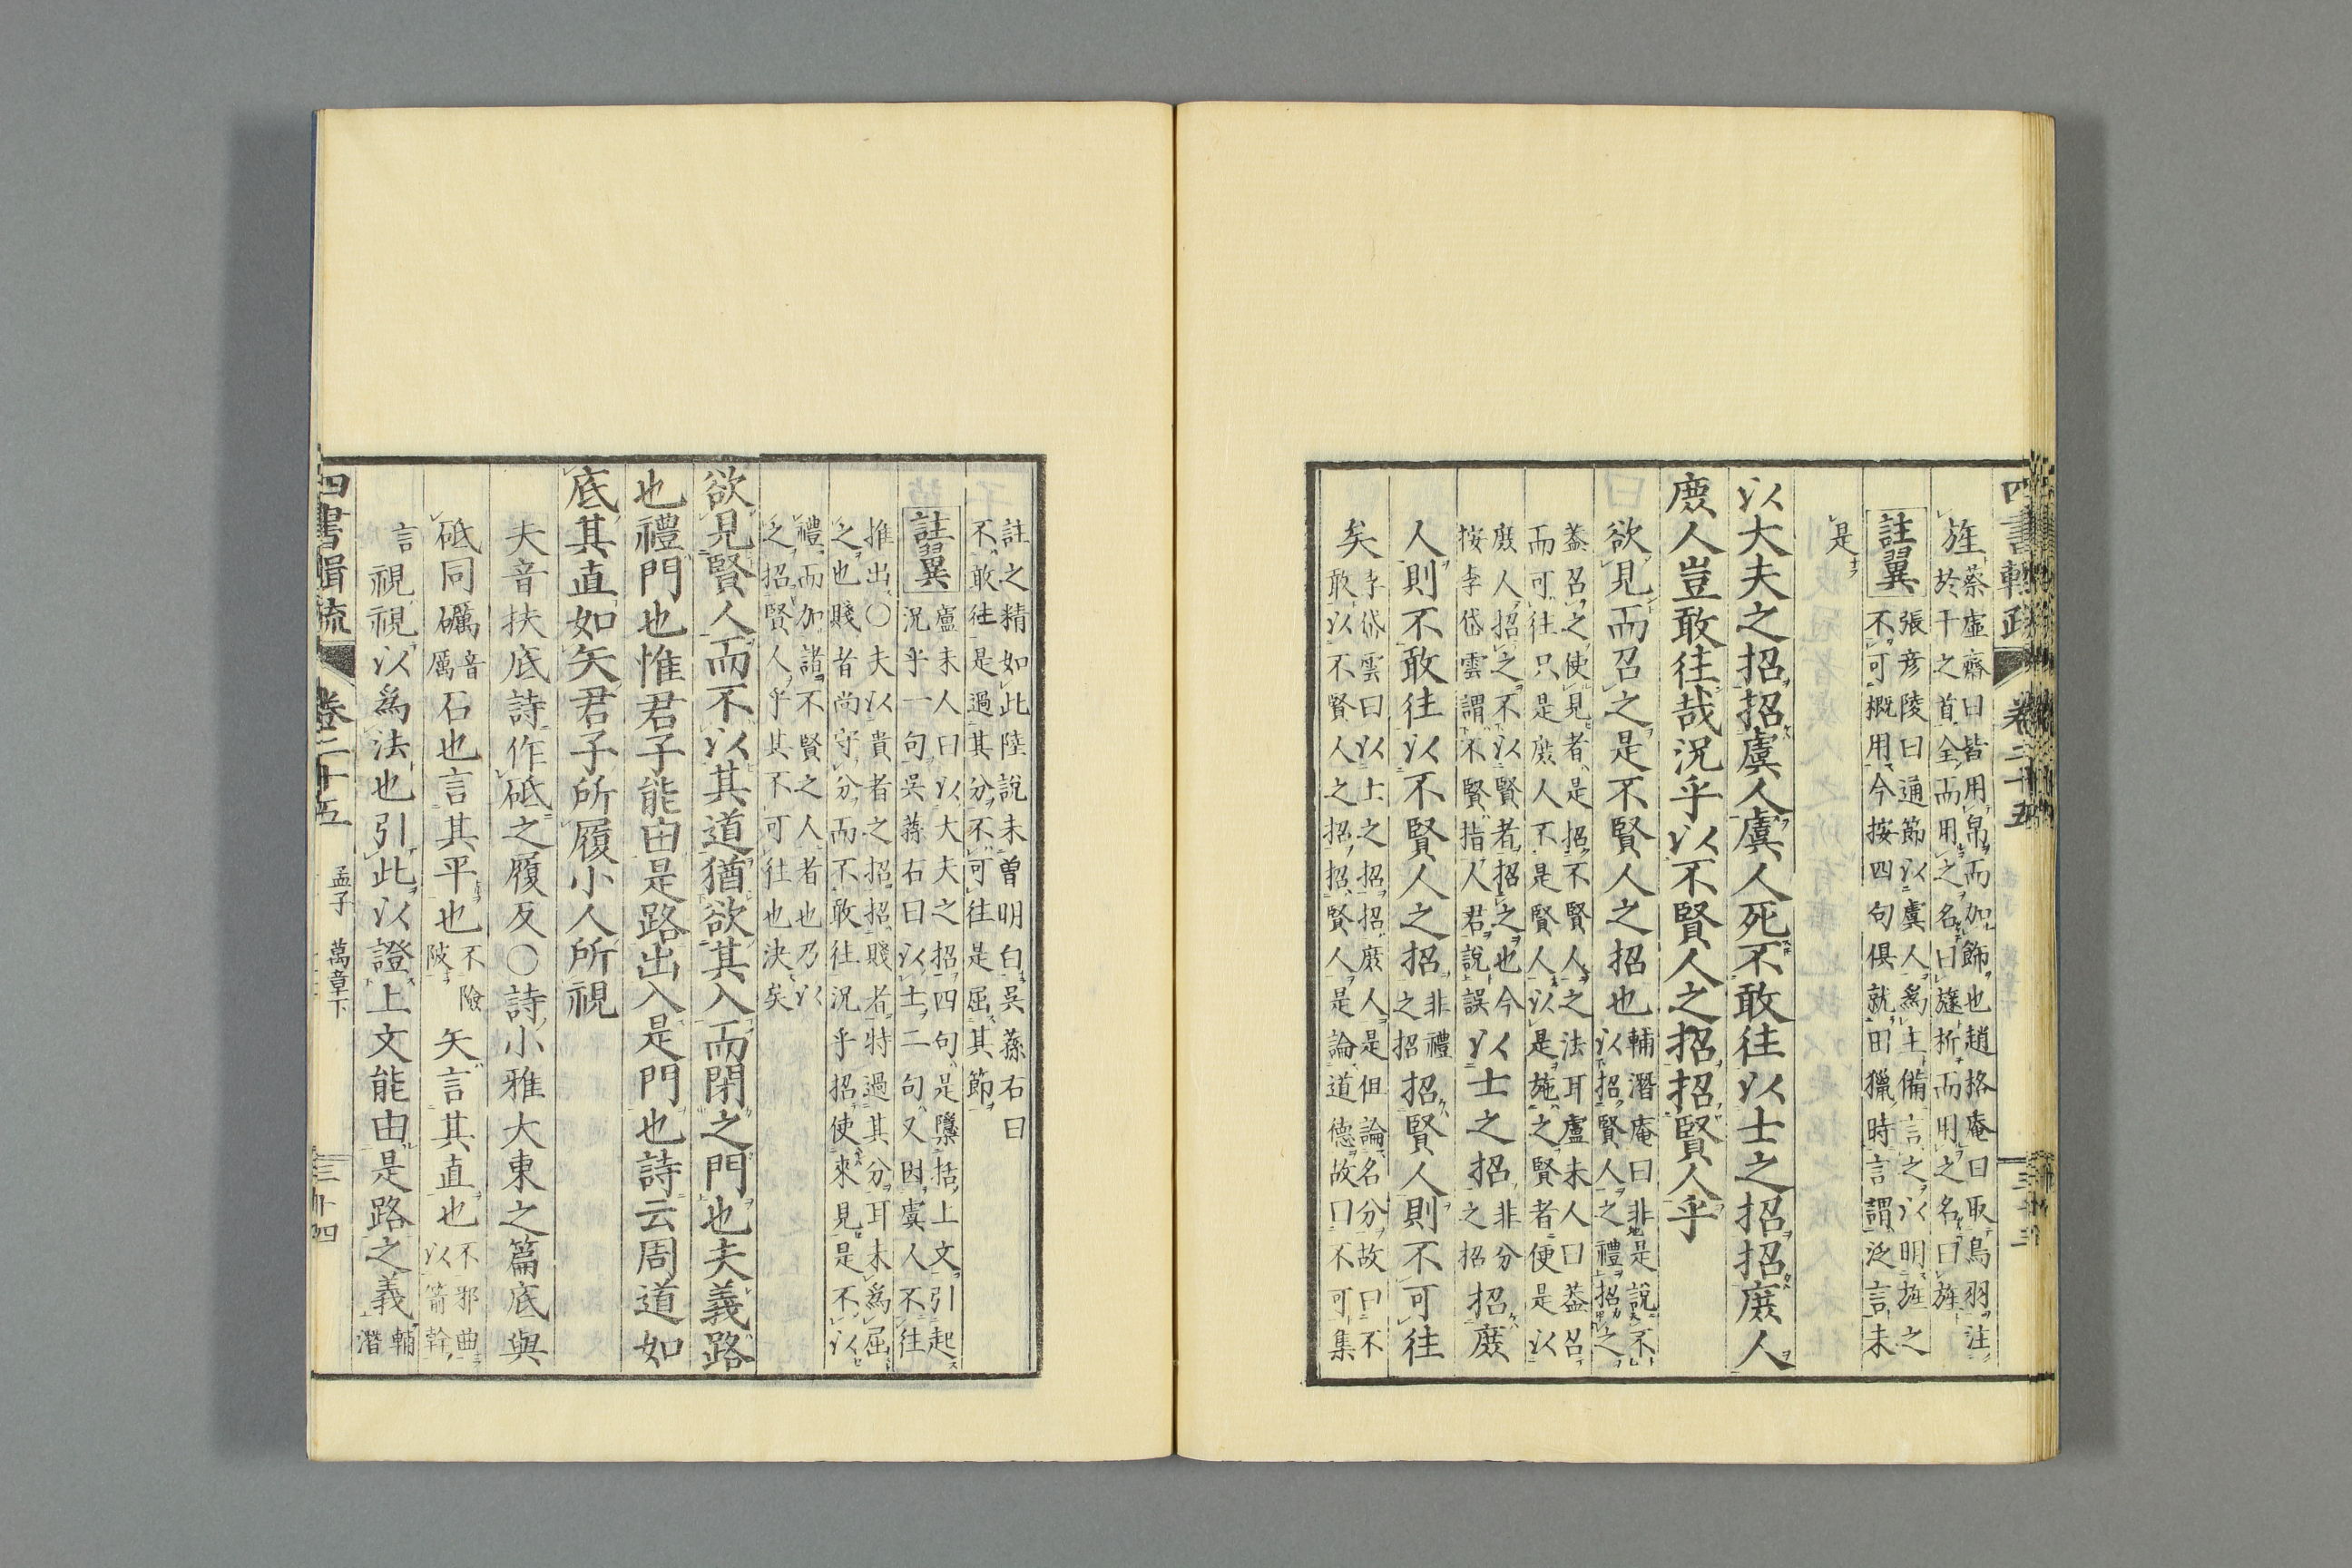 四書輯疏 卷二十五
旌 蔡虛齋曰皆用帛而加飾也趙格庵曰取鳥羽注
於干之首全而用之名曰旞析而用之名曰旌
註翼 張彥陵曰通節以虞人爲主備言之以明旌之
不可概用今按四句俱就田獵時言謂泛言未
是
以大夫之招招虞人虞人死不敢往以士之招招庶人
庶人豈敢往哉況乎以不賢人之招招賢人乎
欲見而召之是不賢人之招也 輔潛庵曰非是說不
以招賢人之禮招之
蓋召之使見者是招不賢人之法耳盧未人曰蓋召
而可往只是庶人不是賢人以是施之賢者便是以
庶人招之不以賢者招之也今
按李岱雲謂不賢指人君說誤 以士之招 非分
之招 招庶
人則不敢往以不賢人之招 非禮
之招 招賢人則不可往
矣 李岱雲曰以上之招招庶人是但論名分故曰不
敢以不賢人之招招賢人是論道德故曰不可集
註之精如此陸說未曾明白吳蓀右曰
不敢往是過其分不可往是屈其節
註翼 盧未人曰以大夫之招四句是檃括上文引起
況乎一句吳蓀右曰以士二句又因虞人不往
推出○夫以貴者之招招賤者特過其分耳未爲屈
之也賤者尚守分而不敢往況乎招使來見是不以
禮而加諸不賢之人者也乃以
之招賢人乎其不可往也決矣
欲見賢人而不以其道猶欲其入而閉之門也夫義路
也禮門也惟君子能由是路出入是門也詩云周道如
底其直如矢君子所履小人所視
夫音扶底詩作砥之履反○詩小雅大東之篇底與
砥同礪 音
厲 石也言其平也 不險
陂 矢言其直也 不邪曲
以箭幹
言視視以爲法也引此以證上文能由是路之義 輔
潛
四書輯疏 卷二十五 孟子 萬章下 三十四